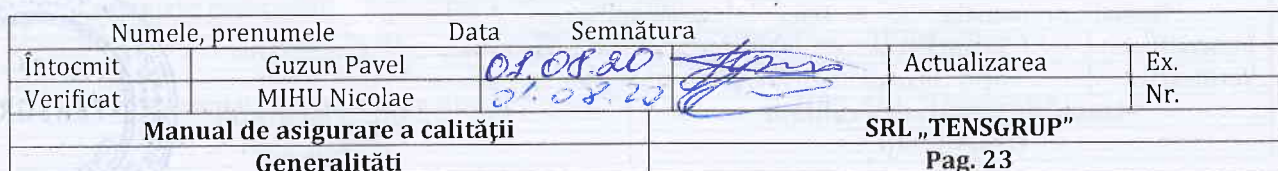 Numele, prenumele Data Semnătura
Întocmit Guzun Pavel 01.08.20 Actualizarea Ex.
Verificat MIHU Nicolae 01.08.20 Nr.
Manual de asigurare a calităţii SRL „TENSGRUP”
Generalităţi Pag. 23